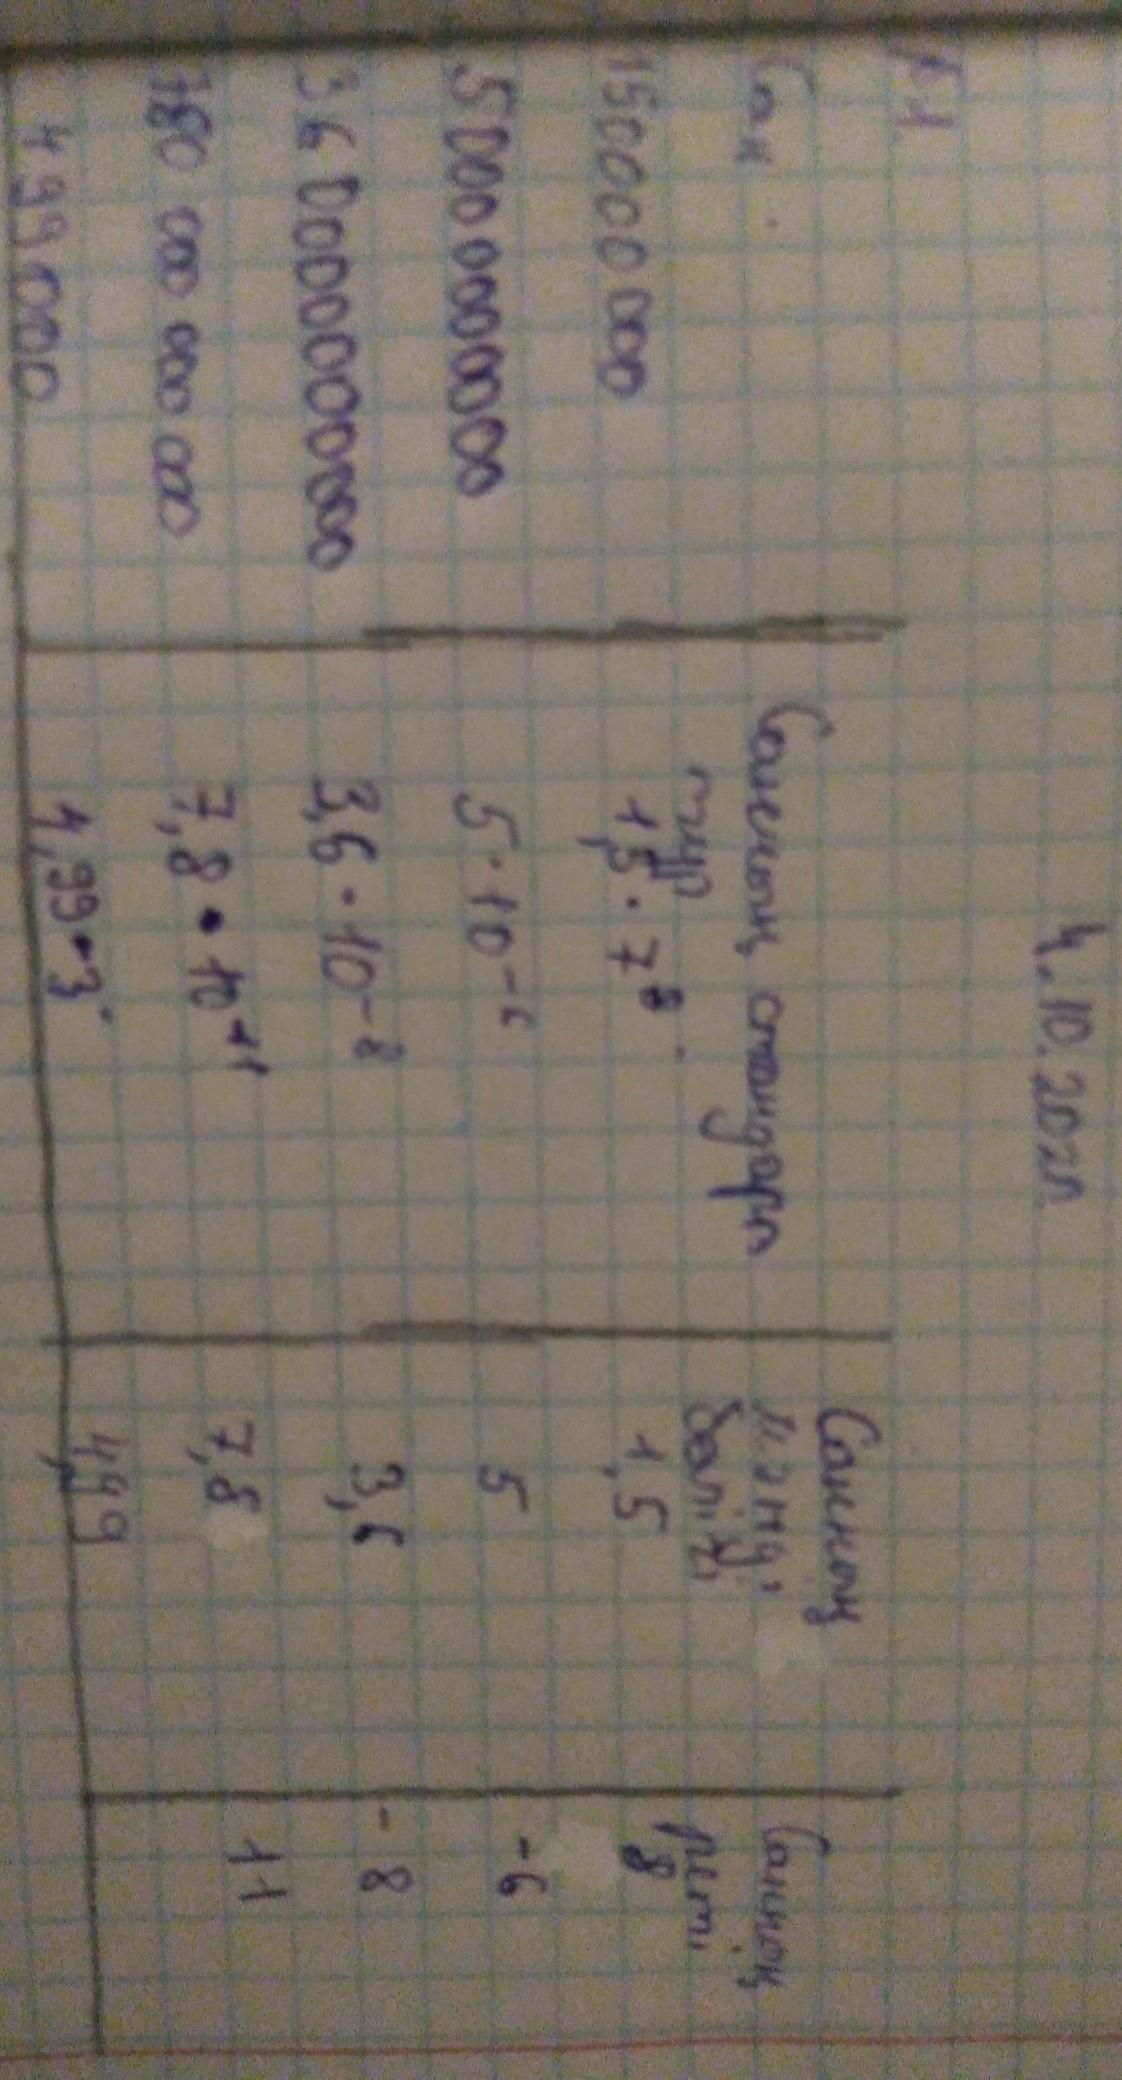 4. 10. 20 жл
№1
Сан
Санның стандарт
түрі
Санның
мәнді
бөлігі
Санның
реті
150000 000 1,5 · 7⁸ 1,5 8
5000 0000000 5 · 10⁻⁶ 5 -6
36 0000000000 3,6 · 10⁻⁸ 3,6 -8
780 000 000 000 7,8 · 10¹¹ 7,8 11
499 000 4,99 · 3 4,99